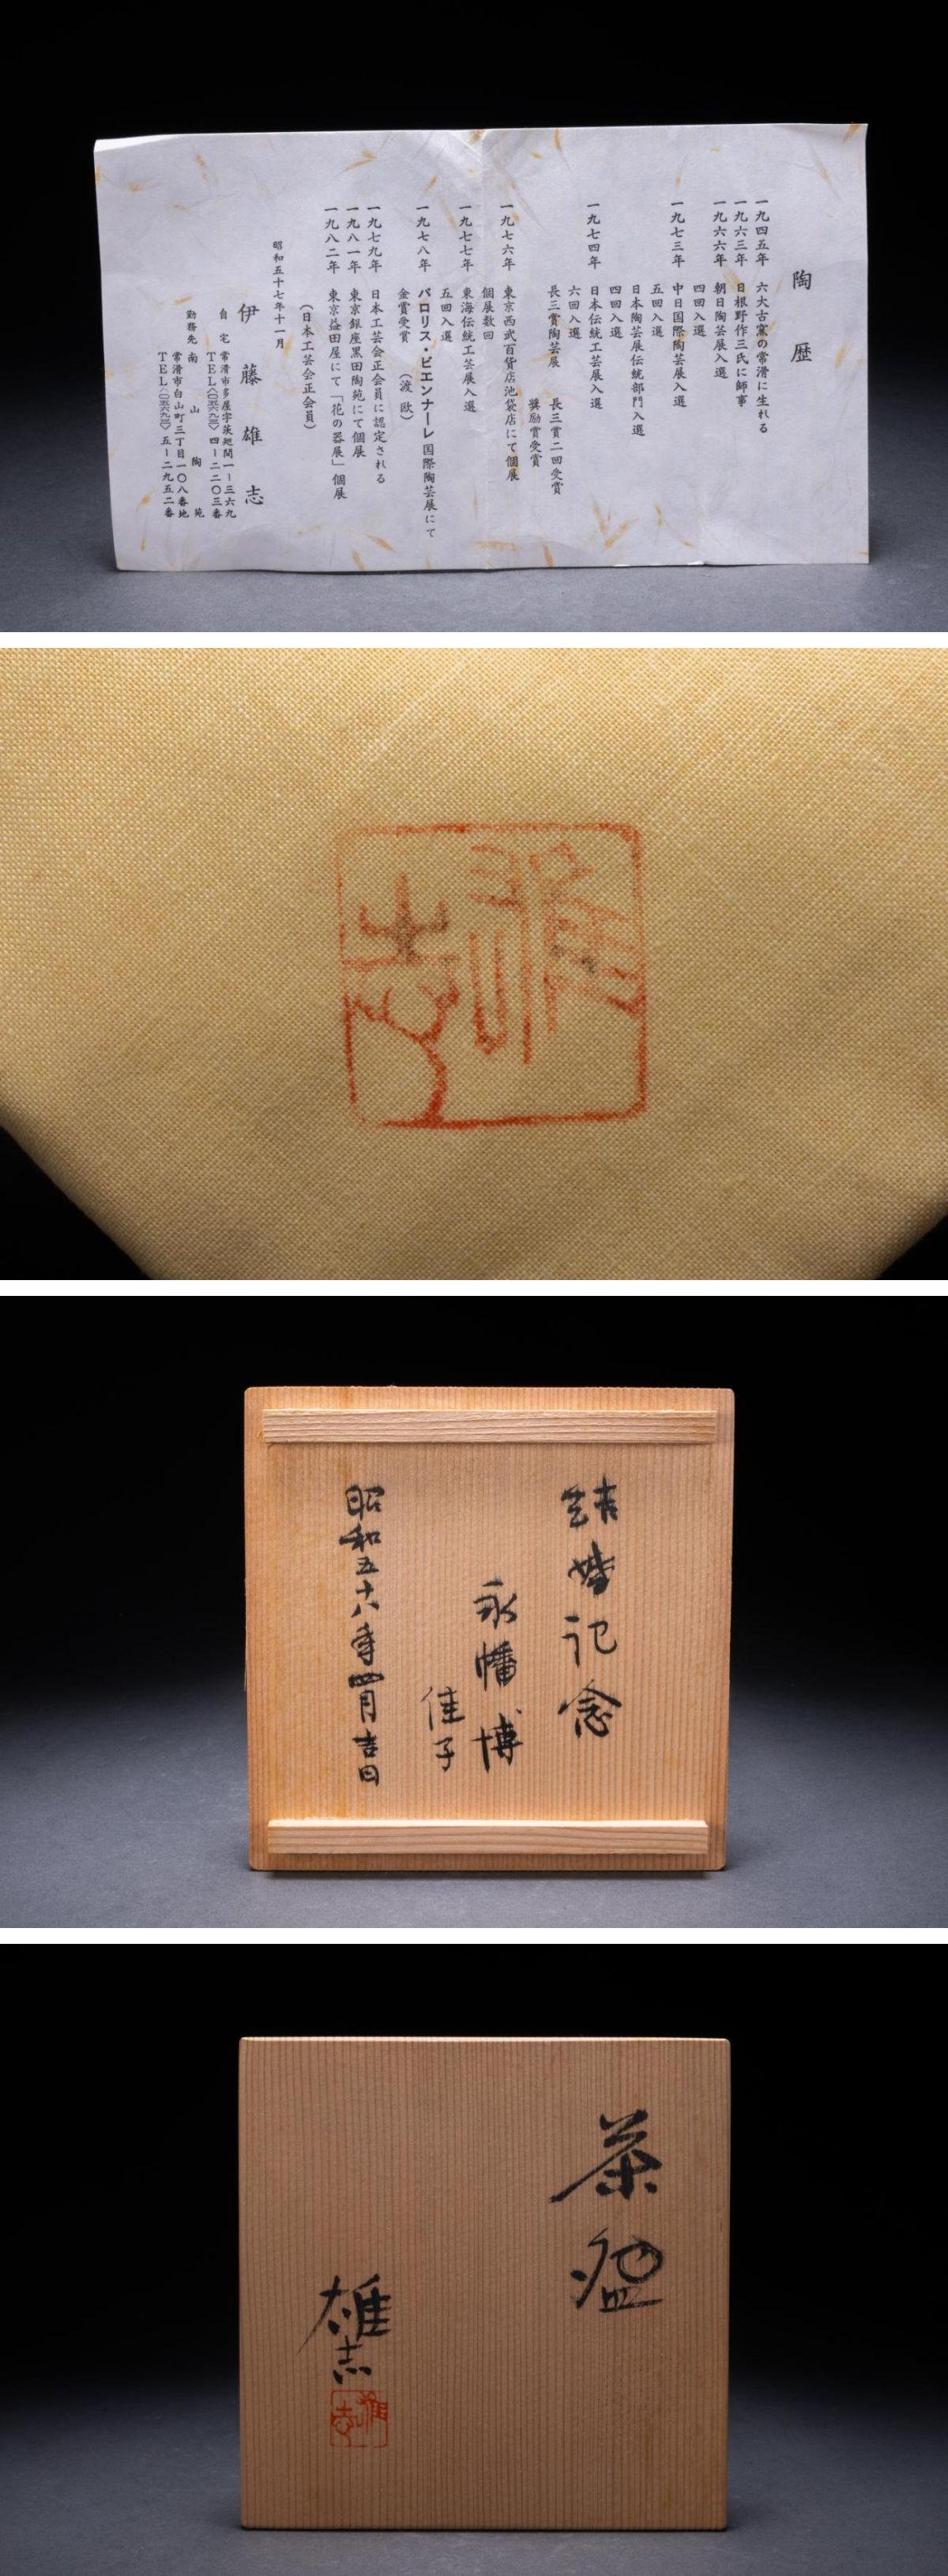 陶歴
一九四五年 六大古窯の常滑に生れる
一九六三年 日根野作三氏に師事
一九六六年 朝日陶芸展入選
四回入選
一九七三年 中日国際陶芸展入選
五回入選
日本陶芸展伝統部門入選
四回入選
一九七四年 日本伝統工芸展入選
六回入選
長三賞陶芸展 長三賞二回受賞
奨励賞受賞
一九七六年 東京西武百貨店池袋店にて個展
個展数回
一九七七年 東海伝統工芸展入選
五回入選
一九七八年 バロリス・ビエンナーレ国際陶芸展にて
金賞受賞 (渡欧)
一九七九年 日本工芸会正会員に認定される
一九八一年 東京銀座黒田陶苑にて個展
一九八二年 東京益田屋にて「花の器展」個展
(日本工芸会正会員)
昭和五十七年十一月
伊藤雄志
自宅 常滑市多屋字茨廻間一ー三六九
TEL 四ー二二〇三番
勤務先 南山陶苑
常滑市白山町三丁目一〇八番地
TEL 五ー二九五二番
雄志
結婚記念
永幡 博
佳子
昭和五十八年四月吉日
茶盌
雄志
雄志